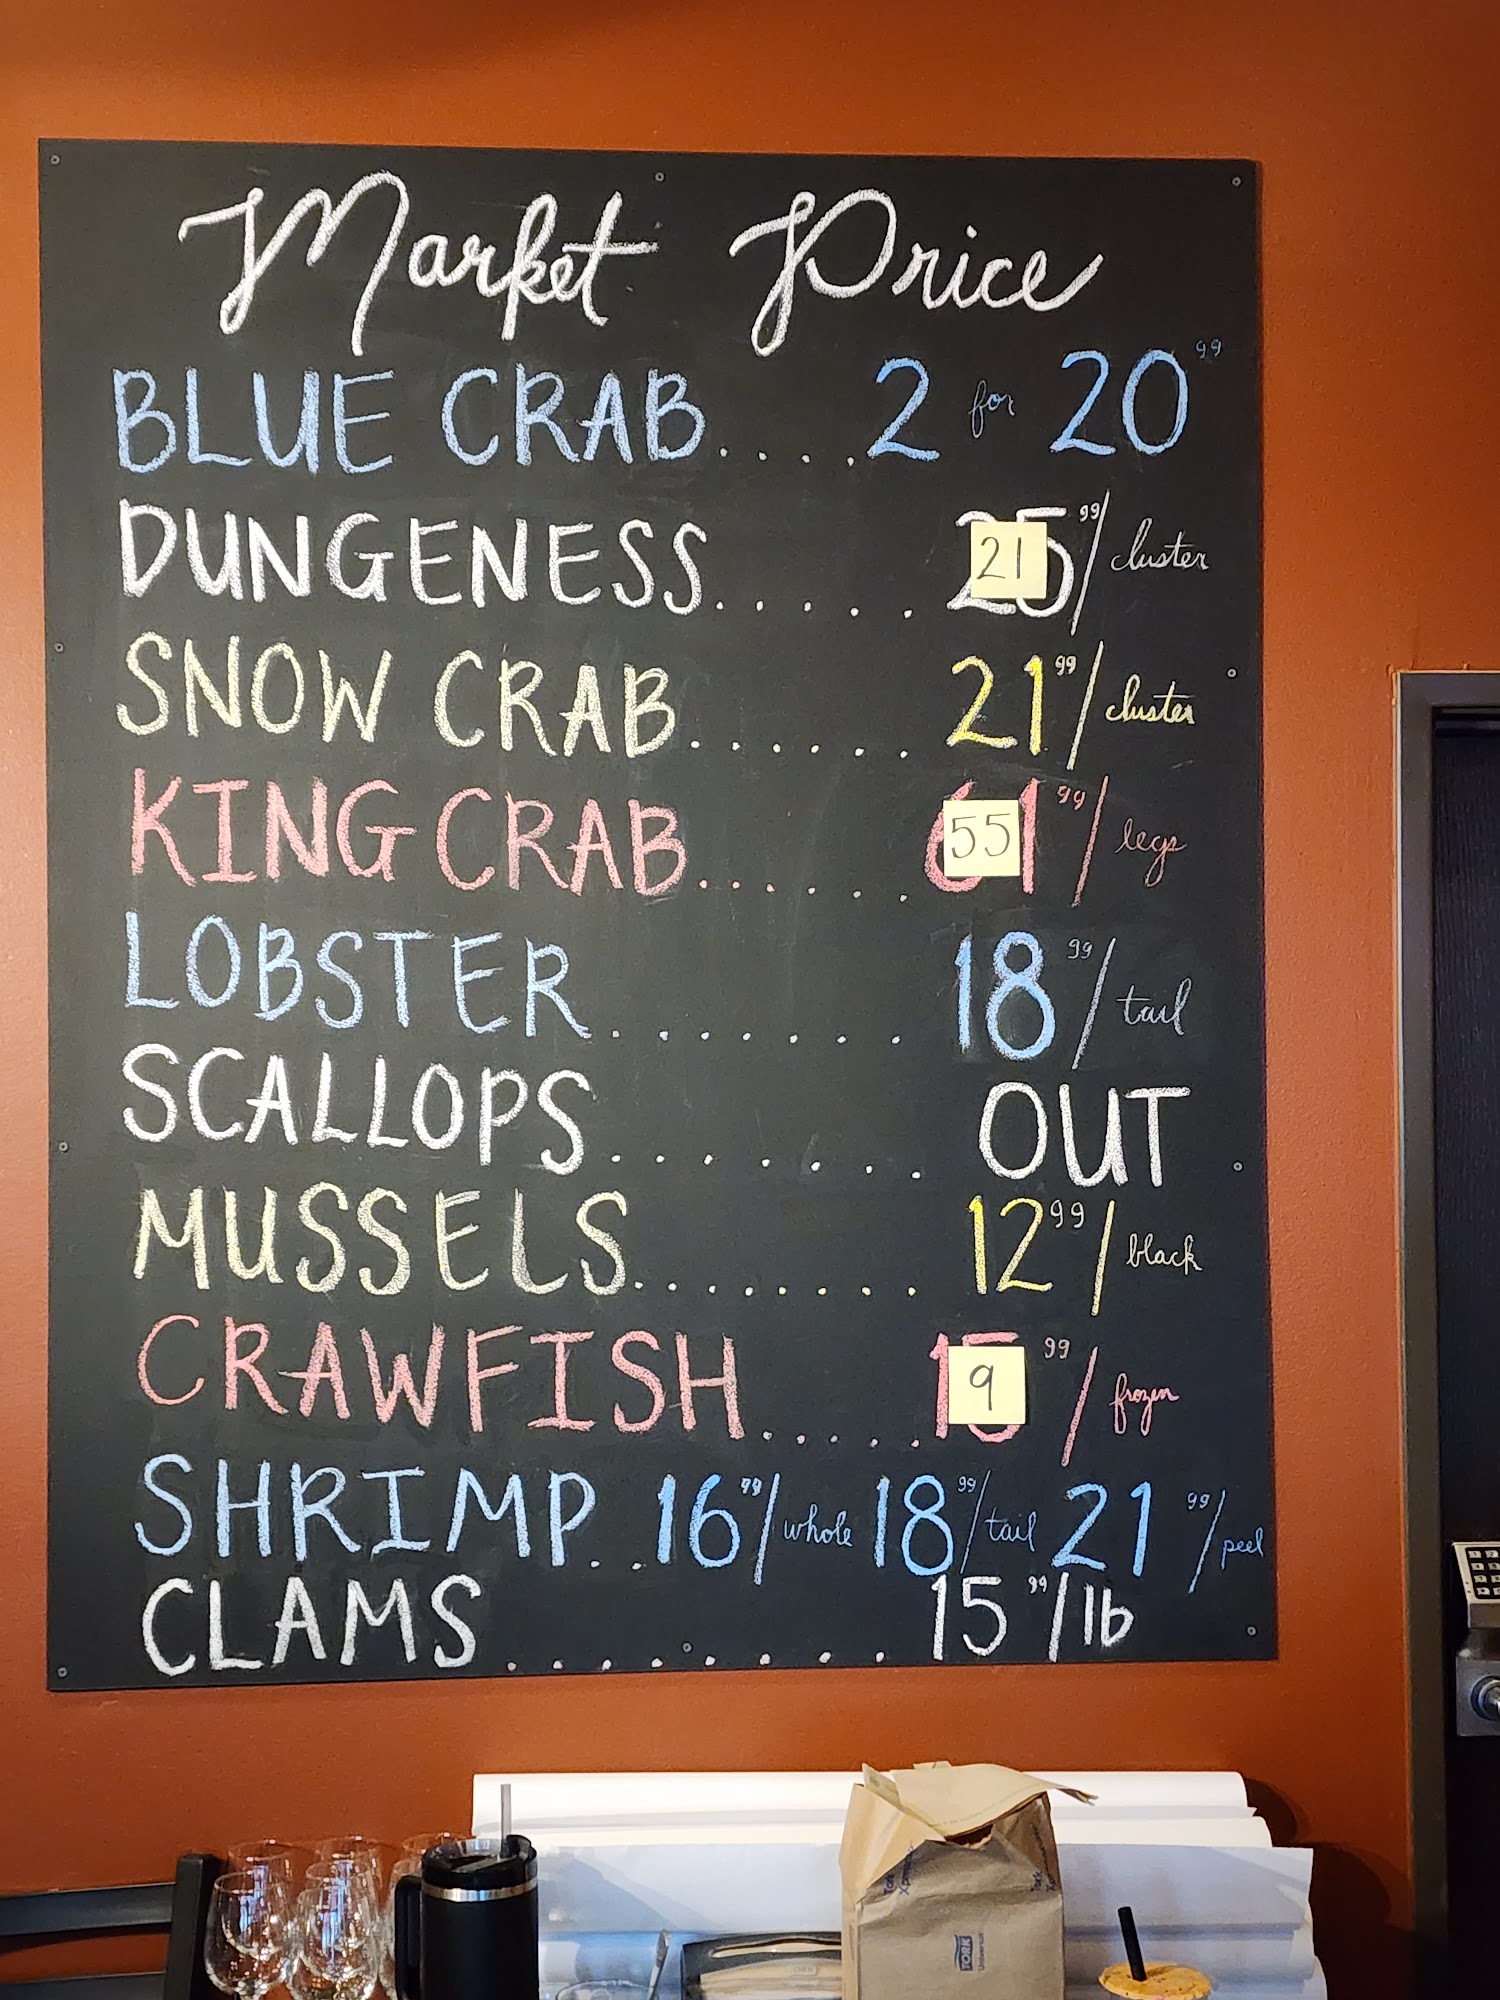 Market Price
BLUE CRAB....2 for 20 99
DUNGENESS..... 21 99/cluster
SNOW CRAB...... 21 99/cluster
KING CRAB...... 55 99/legs
LOBSTER....... 18 99/tail
SCALLOPS....... OUT
MUSSELS........ 12 99/black
CRAWFISH..... 9 99/frozen
SHRIMP.. 16 99/whole 18 99/tail 21 99/peel
CLAMS ....... 15 99/lb
TORK
Universal